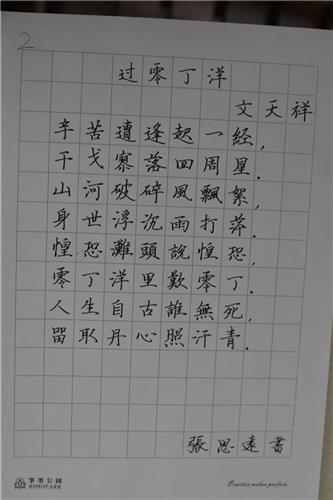 2
过零丁洋
文天祥
辛苦遭逢起一經，
干戈寥落四周星．
山河破碎風飄絮，
身世浮沉雨打萍．
惶恐灘頭說惶恐，
零丁洋里歎零丁．
人生自古誰無死，
留取丹心照汗青．
張思遠書
筆墨公園
BIMOPARK
Practice makes perfect.